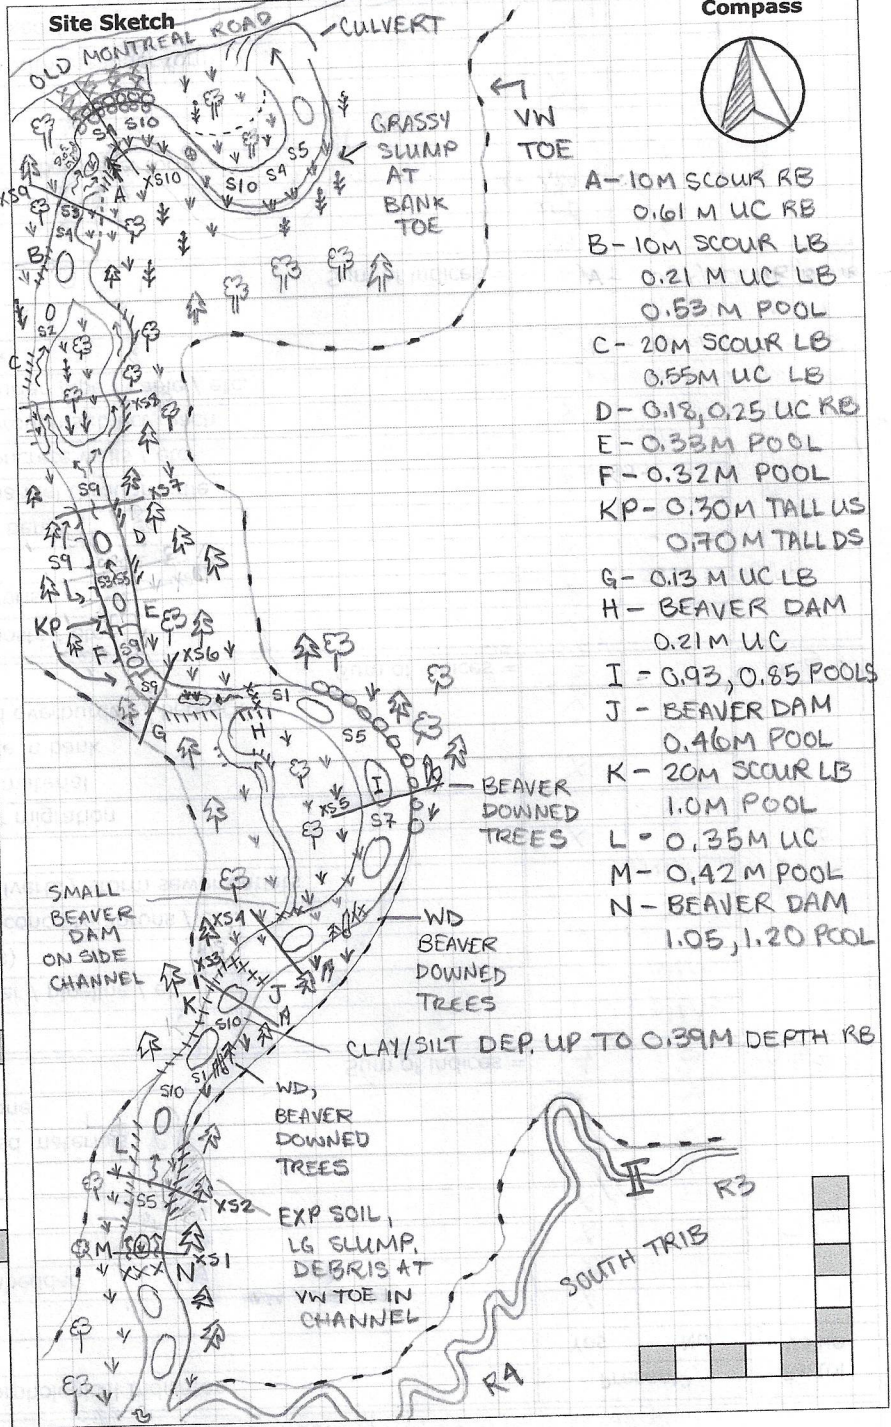 Site Sketch
Compass
OLD MONTREAL ROAD
CULVERT
VW
TOE
GRASSY
SLUMP
AT
BANK
TOE
S10
S5
S4
S10
XS10
A
XS9
S3
S4
B
S2
C
XS8
S9
XS7
D
S9
S3/S5
L
E
KP
F
S9
XS6
S9
G
S1
H
S5
I
XS5
S7
BEAVER
DOWNED
TREES
SMALL
BEAVER
DAM
ON SIDE
CHANNEL
XS4
WD
BEAVER
DOWNED
TREES
XS3
K
J
S10
CLAY/SILT DEP. UP TO 0.39M DEPTH RB
S1
S10
WD,
BEAVER
DOWNED
TREES
L
XS2
S5
EXP SOIL,
LG SLUMP,
DEBRIS AT
VW TOE IN
CHANNEL
M
N
XS1
A- 10M SCOUR RB
0.61 M UC RB
B- 10M SCOUR LB
0.21 M UC LB
0.53 M POOL
C- 20M SCOUR LB
0.55M UC LB
D- 0.18, 0.25 UC RB
E- 0.33M POOL
F- 0.32M POOL
KP- 0.30M TALL US
0.70M TALL DS
G- 0.13 M UC LB
H- BEAVER DAM
0.21M UC
I- 0.93, 0.85 POOLS
J- BEAVER DAM
0.46M POOL
K- 20M SCOUR LB
1.0M POOL
L- 0.35M UC
M- 0.42M POOL
N- BEAVER DAM
1.05, 1.20 POOL
II
R3
SOUTH TRIB
R4